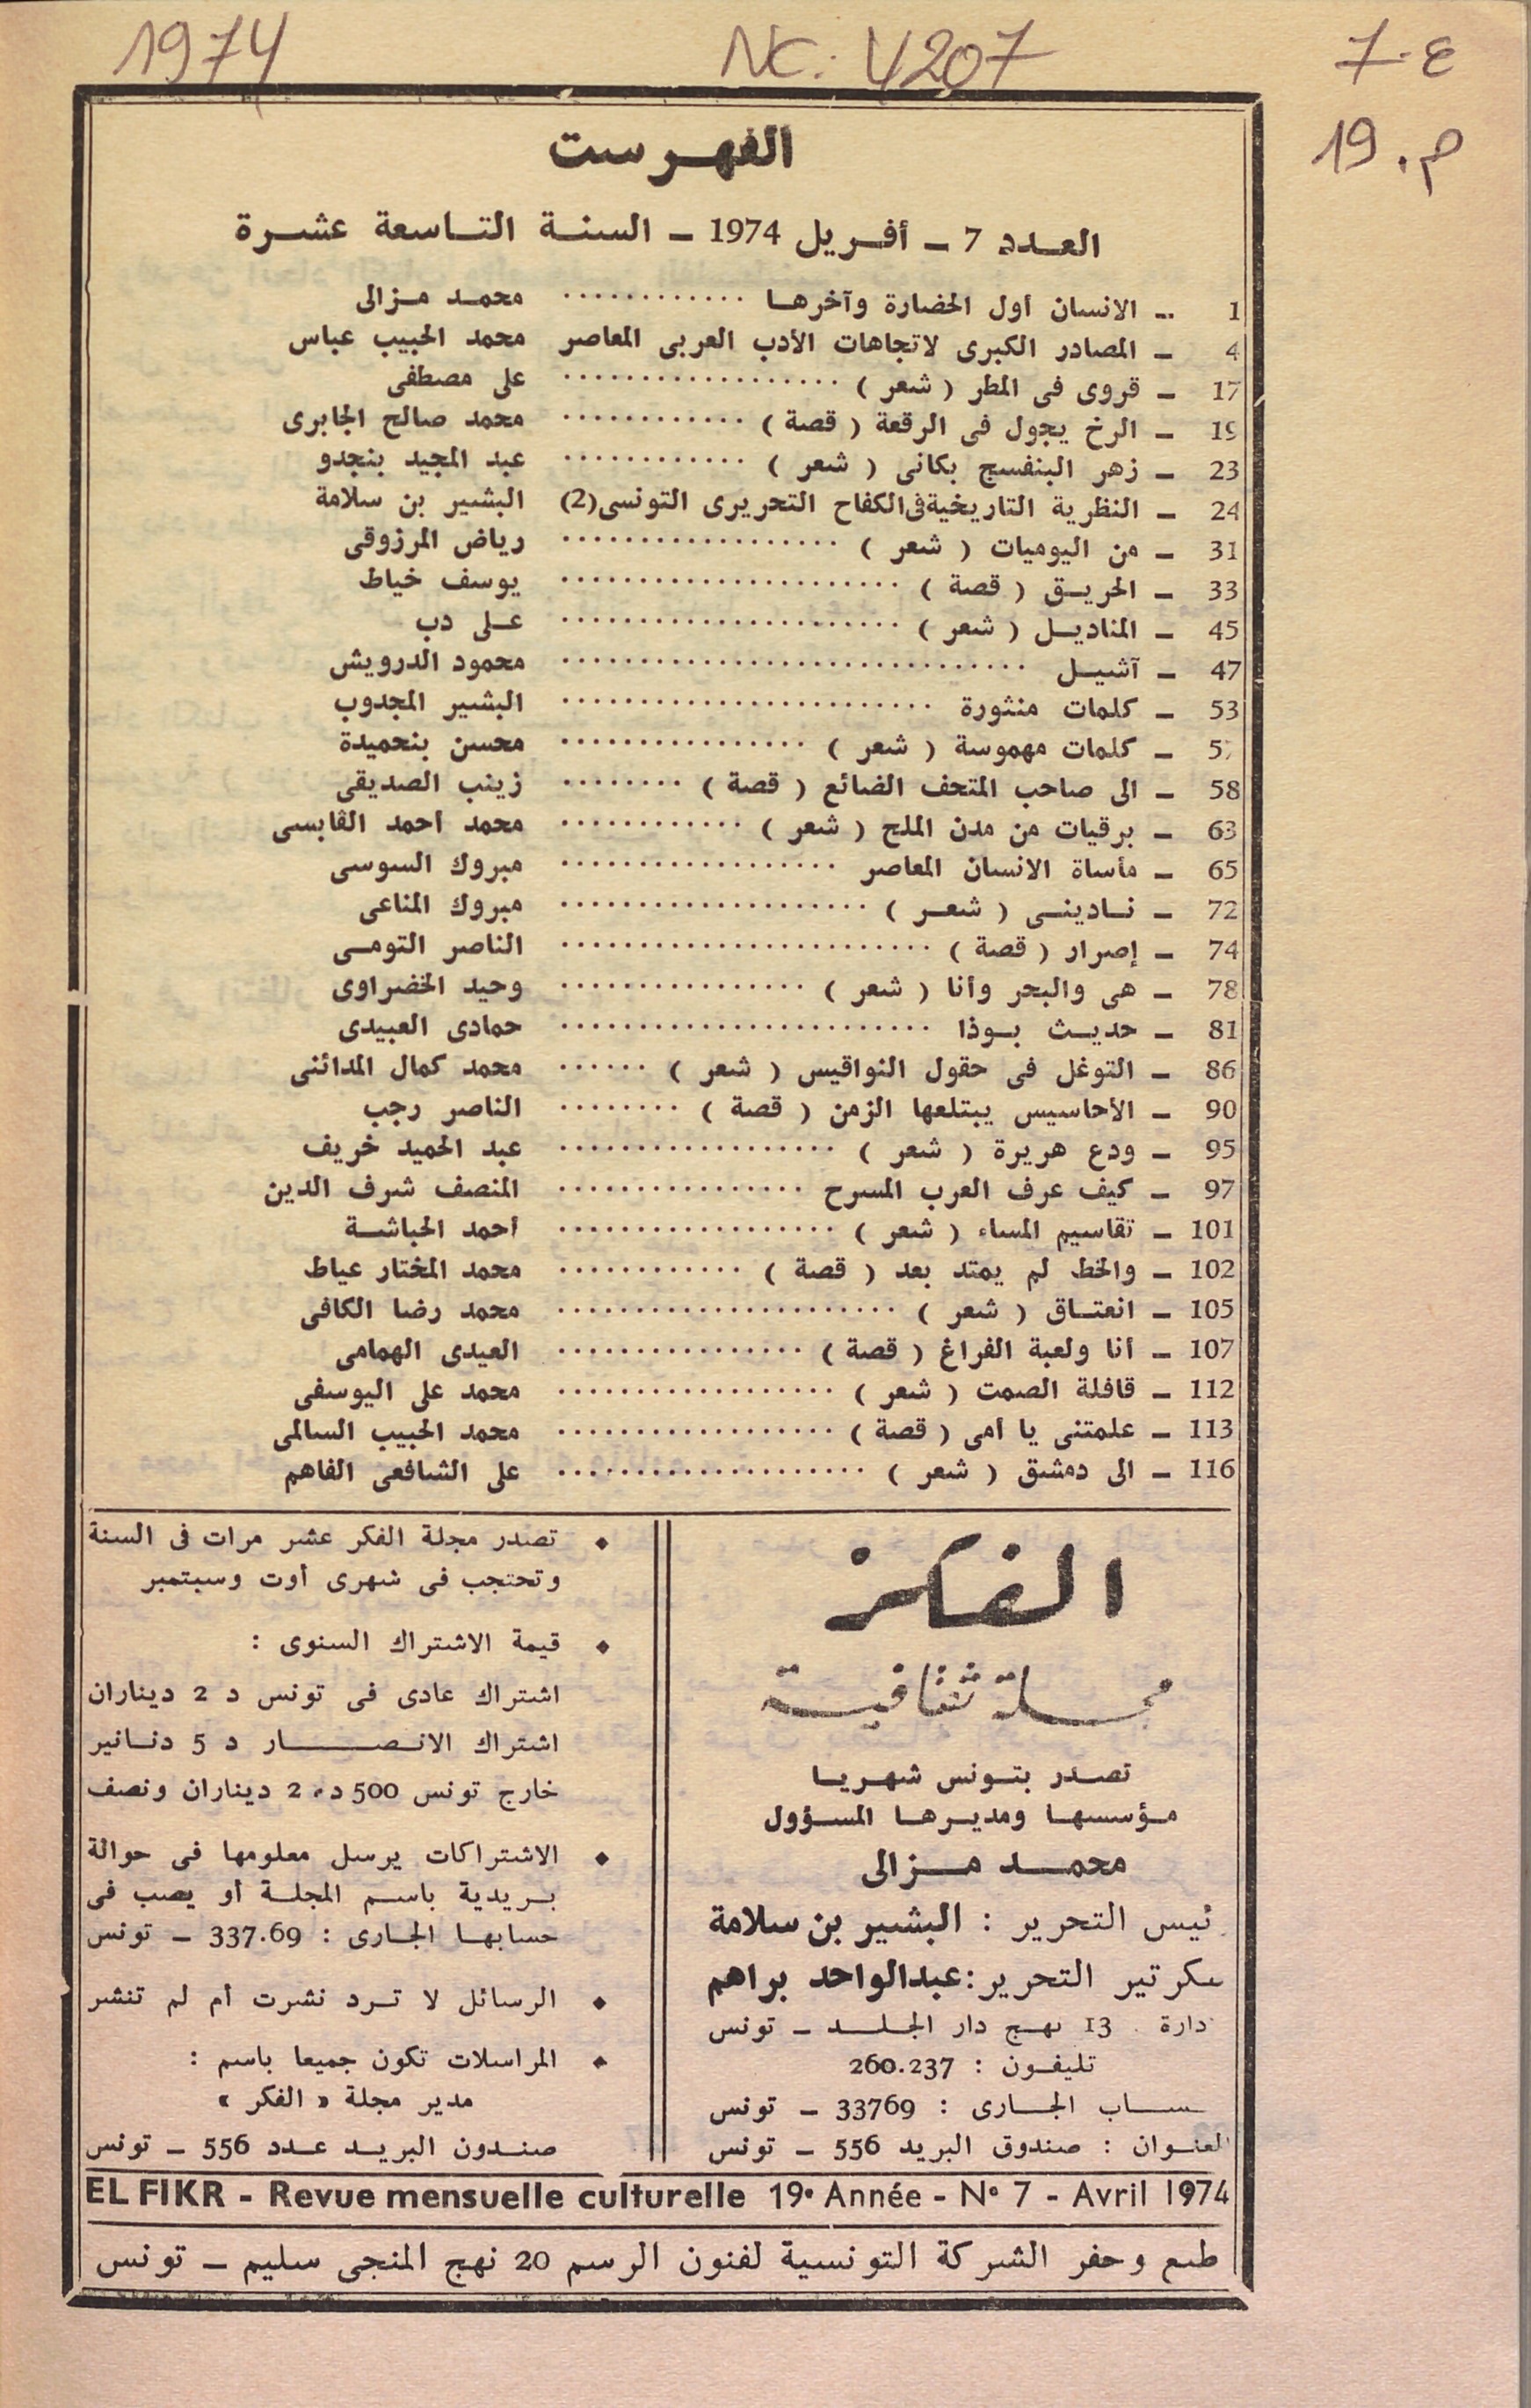 1974
NC: 4207
ع. 7
م. 19
الفهرست
العدد 7 ـ أفريل 1974 ـ السنة التاسعة عشرة
1 ـ الانسان أول الحضارة وآخرها ............ محمد مزالى
4 ـ المصادر الكبرى لاتجاهات الأدب العربى المعاصر محمد الحبيب عباس
17 ـ قروى فى المطر ( شعر ) .................. على مصطفى
19 ـ الرخ يجول فى الرقعة ( قصة ) ............ محمد صالح الجابرى
23 ـ زهر البنفسج بكانى ( شعر ) ............ عبد المجيد بنجدو
24 ـ النظرية التاريخية فى الكفاح التحريرى التونسى (2) البشير بن سلامة
31 ـ من اليوميات ( شعر ) .................. رياض المرزوقى
33 ـ الحريق ( قصة ) ...................... يوسف خياط
45 ـ المناديل ( شعر ) ...................... على دب
47 ـ آشيل .............................. محمود الدرويش
53 ـ كلمات منثورة ........................ البشير المجدوب
57 ـ كلمات مهموسة ( شعر ) ................ محسن بنحميدة
58 ـ الى صاحب المتحف الضائع ( قصة ) ........ زينب الصديقى
63 ـ برقيات من مدن الملح ( شعر ) ............ محمد أحمد القابسى
65 ـ مأساة الانسان المعاصر .................. مبروك السوسى
72 ـ نادينى ( شعر ) .................... مبروك المناعى
74 ـ إصرار ( قصة ) ........................ الناصر التومى
78 ـ هى والبحر وأنا ( شعر ) ................ وحيد الخضراوى
81 ـ حديث بوذا ........................ حمادى العبيدى
86 ـ التوغل فى حقول النواقيس ( شعر ) ...... محمد كمال المدائنى
90 ـ الأحاسيس يبتلعها الزمن ( قصة ) ........ الناصر رجب
95 ـ ودع هريرة ( شعر ) .................. عبد الحميد خريف
97 ـ كيف عرف العرب المسرح ................ المنصف شرف الدين
101 ـ تقاسيم المساء ( شعر ) .................. أحمد الحباشة
102 ـ والخط لم يمتد بعد ( قصة ) ............ محمد المختار عياط
105 ـ انعتاق ( شعر ) ...................... محمد رضا الكافى
107 ـ أنا ولعبة الفراغ ( قصة ) ................ العيدى الهمامى
112 ـ قافلة الصمت ( شعر ) .................. محمد على اليوسفى
113 ـ علمتنى يا أمى ( قصة ) .................. محمد الحبيب السالمى
116 ـ الى دمشق ( شعر ) .................... على الشافعى الفاهم
الفكر
مجلة ثقافية
تصدر بتونس شهريا
مؤسسها ومديرها المسؤول
محمد مزالى
ئيس التحرير : البشير بن سلامة
سكرتير التحرير : عبدالواحد براهم
دارة 13 نهج دار الجلد ـ تونس
تليفون : 260.237
ساب الجارى : 33769 ـ تونس
العنوان : صندوق البريد 556 ـ تونس
• تصدر مجلة الفكر عشر مرات فى السنة
وتحتجب فى شهرى أوت وسبتمبر
• قيمة الاشتراك السنوى :
اشتراك عادى فى تونس د 2 ديناران
اشتراك الانصار د 5 دنانير
خارج تونس 500 د، 2 ديناران ونصف
• الاشتراكات يرسل معلومها فى حوالة
بريدية باسم المجلة أو يصب فى
حسابها الجارى : 337.69 ـ تونس
• الرسائل لا ترد نشرت أم لم تنشر
• المراسلات تكون جميعا باسم :
مدير مجلة « الفكر »
صندون البريد عدد 556 ـ تونس
EL FIKR - Revue mensuelle culturelle 19e Année - N° 7 - Avril 1974
طبع وحفر الشركة التونسية لفنون الرسم 20 نهج المنجى سليم ـ تونس